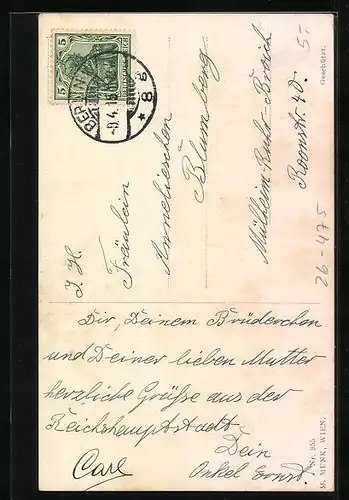 5 5
BERLIN
-9.4.15
* 8 *
J. H.
Fräulein
Anneliechen
Blumberg
Mülheim-Ruhr-Broich
Roonstr. 40.
5.-
Geschützt.
26-475
Dir, Deinem Brüderchen
und Deiner lieben Mutter
herzliche Grüße aus der
Reichshauptstadt
Dein
Onkel Ernst.
Carl
Nr. 955
M. MUNK, WIEN.